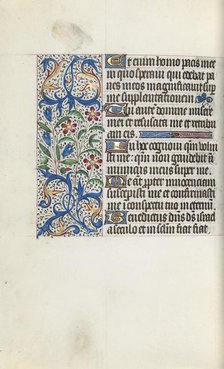 Et enim homo pacis mee
in quo speravi qui edebat pa-
nes meos magnificavit sup
me supplantationem
Tu autē domine miserere
mei et resuscita me et retribu
am eis.
In hoc cognovi qm̄ volui
sti me: qm̄ non gaudebit i
nimicus meus super me.
Me aūt ꝓpter innocenciam
suscepisti me et confirmasti
me i conspectu tuo in eternū.
Benedictus dn̄s ds̄ isrl̄
a seculo et in sclm̄ fiat fiat.